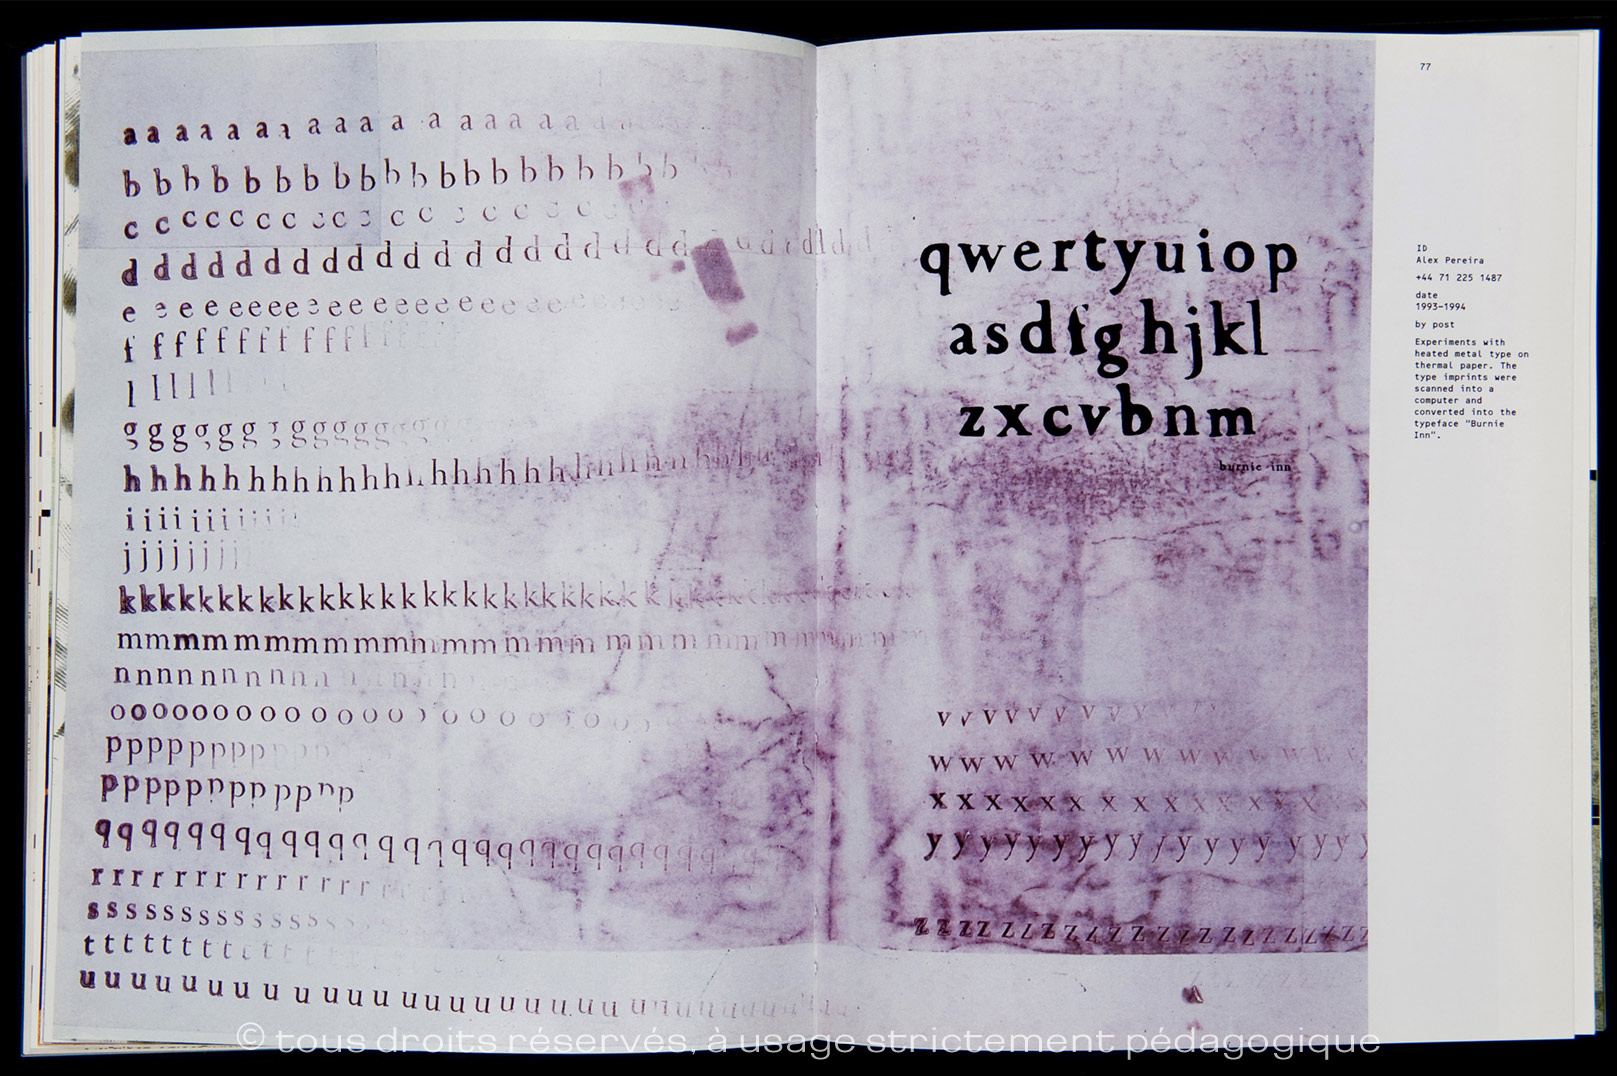 a a a a a a a a a a a a a a a a a
b b b b b b b b b b b b b b b b b b b b
c c c c c c c c c c c c c c c c c
d d d d d d d d d d d d d d d d d d d d
e e e e e e e e e e e e e e e e e
f f f f f f f f f f f
l l l l l
g g g g g g g g g g g g g
h h h h h h h h h h h h h h h h h h h h
i i i i i i i i i i
j j j j j j j j
k k k k k k k k k k k k k k k k k k k k k k k k k
m m m m m m m m m m m m m m m m m m m m m
n n n n n n n n n n
o o o o o o o o o o o o o o o o o o
p p p p p p p p p
p p p p p p p p p p p p
q q q q q q q q q q q q q q q q q q q q q q q q q
r r r r r r r r r r r r r
s s s s s s s s s s s s s
t t t t t t t t t t t
u u u u u u u u u u u u u u u u u u u u u
qwertyuiop
asdfghjkl
zxcvbnm
burnie inn
v v v v v v v v
w w w w w w w w w w
x x x x x x x x x x x x
y y y y y y y y y y y y y y y y y y
z z z z z z z z z z z z z z z z z z z
77
ID
Alex Pereira
+44 71 225 1487
date
1993-1994
by post
Experiments with
heated metal type on
thermal paper. The
type imprints were
scanned into a
computer and
converted into the
typeface "Burnie
Inn".
© tous droits réservés, à usage strictement pédagogique